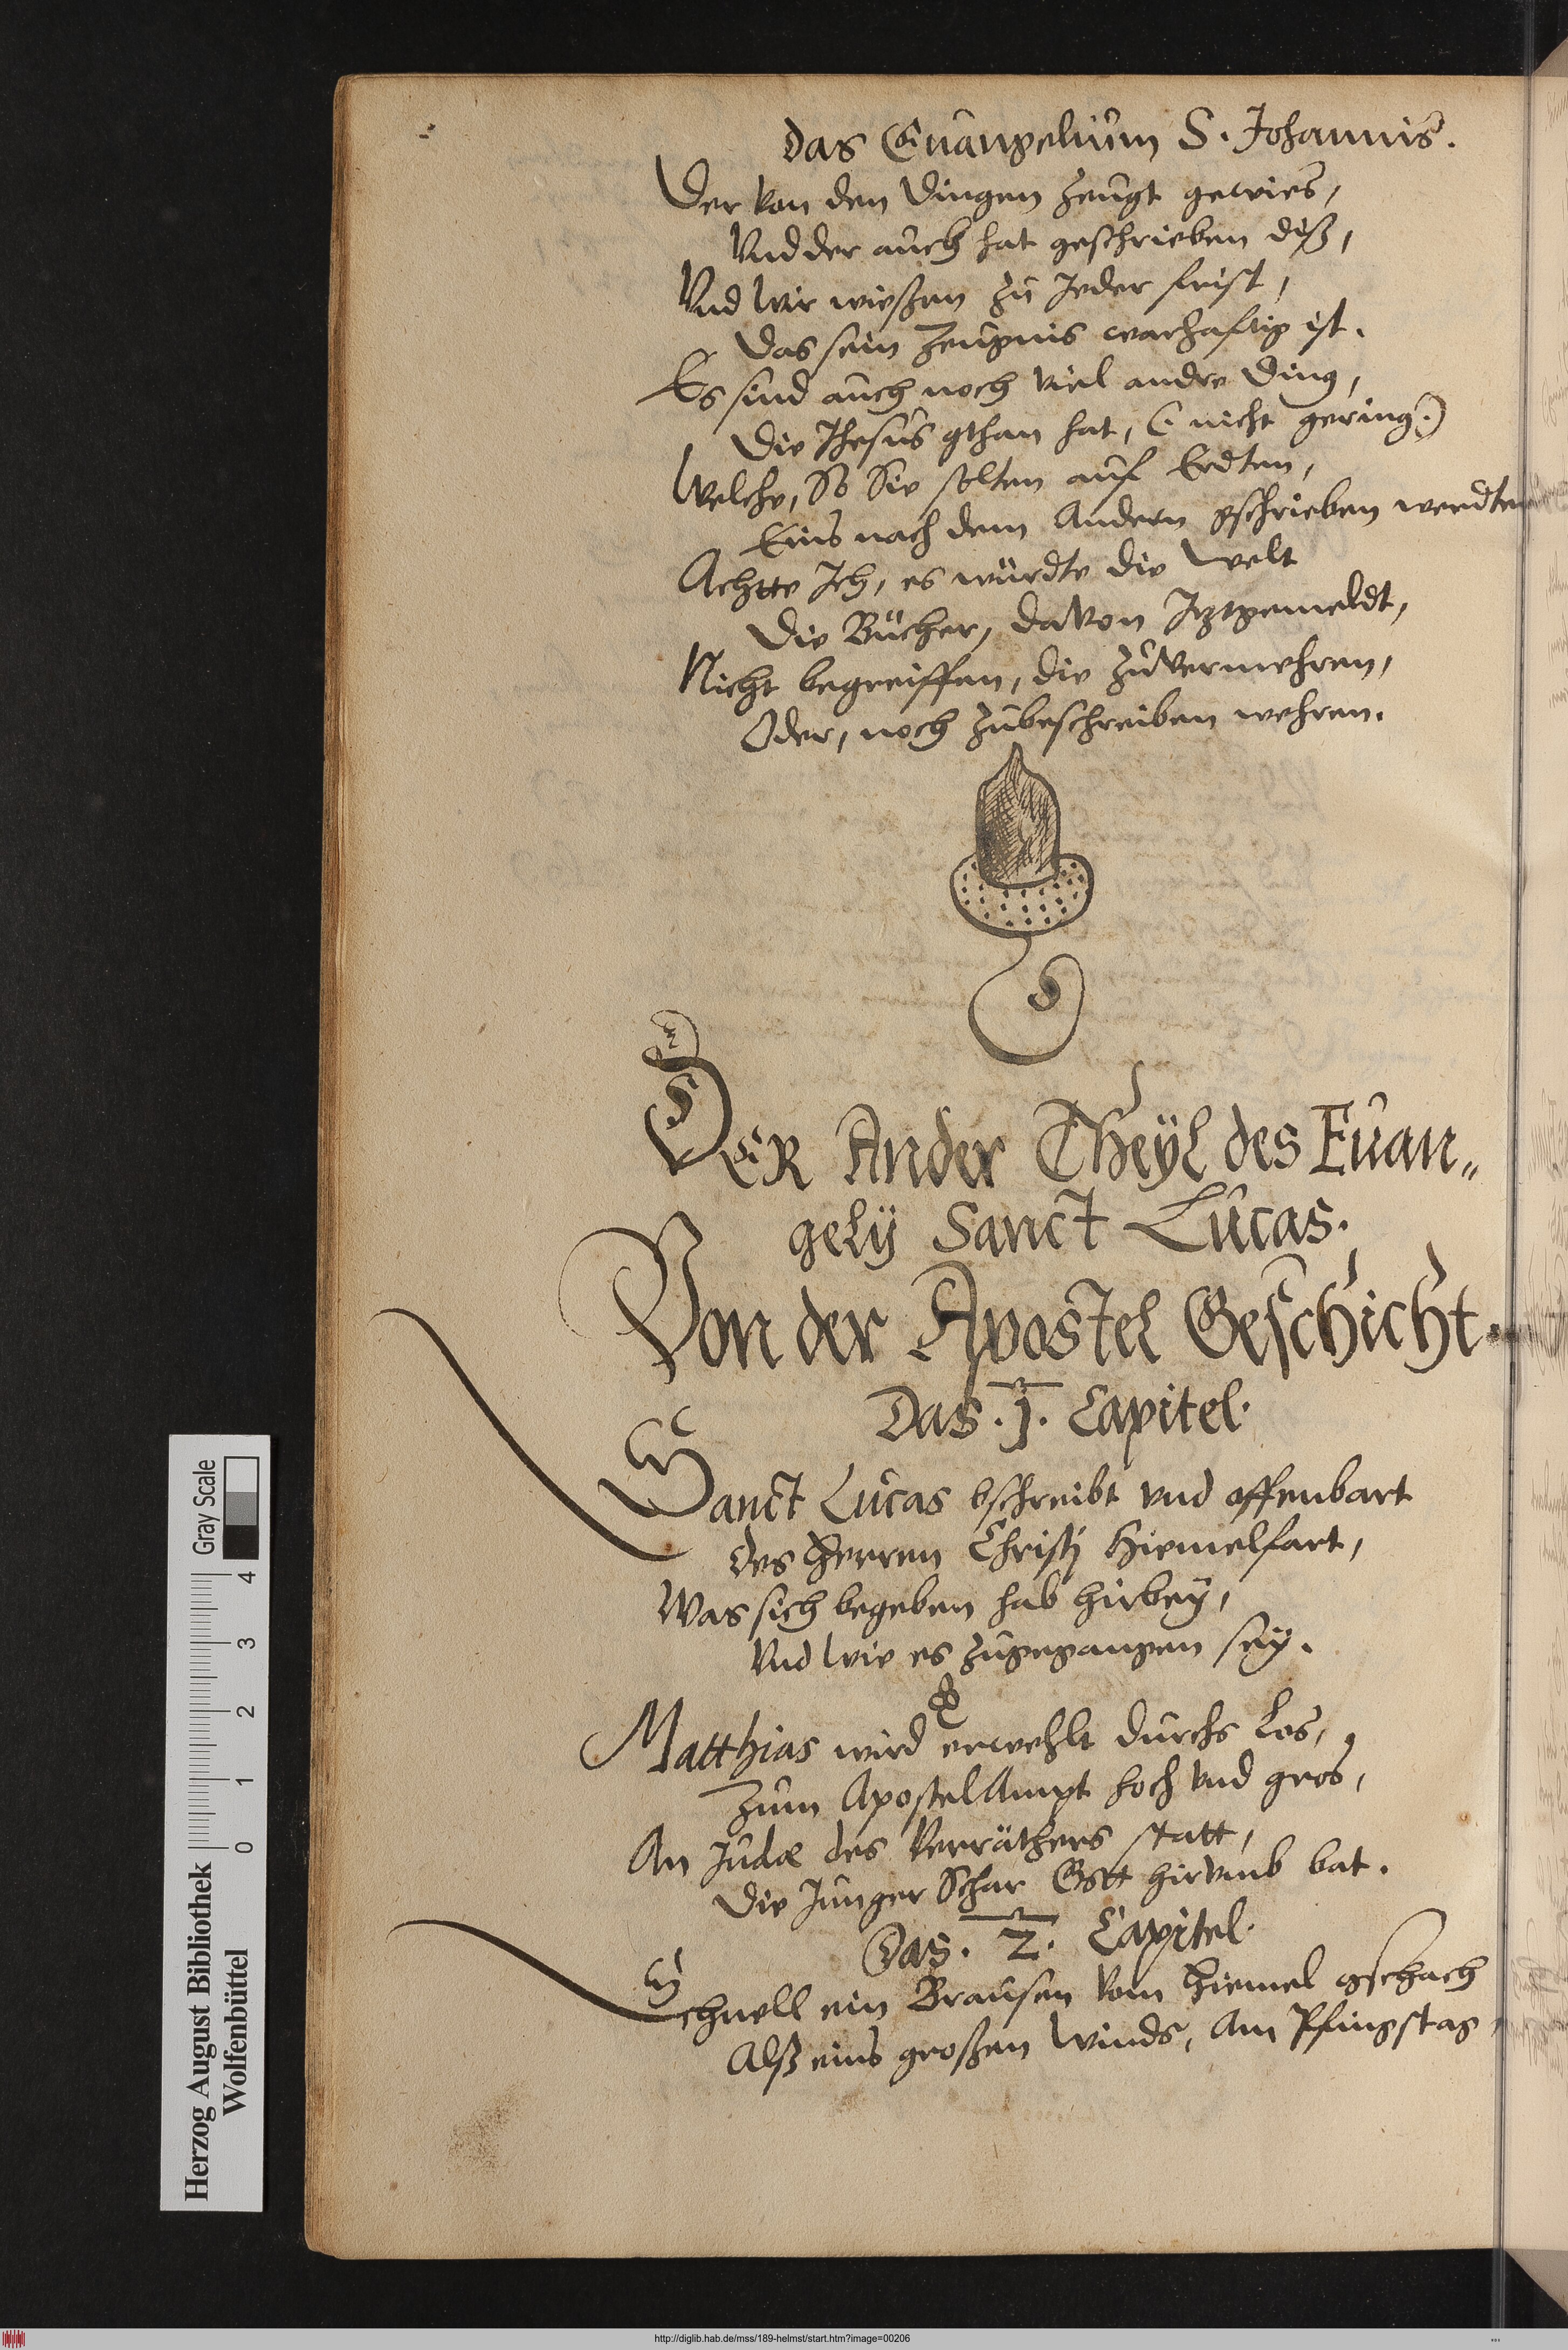 Das Euangelium S. Johannis.
Der von den Dingen zeugt gewies,
Vnd der auch hat geschrieben diß,
Vnd wir wießen zu Jeder frist,
Das sein Zeugnis warhaftig ist.
Es sind auch noch viel andre Ding,
Die Jhesus gthan hat, (: nicht gering:)
Welche, So Sie solten auf Erdten,
Eins nach dem Andern gschrieben werdten
Achtte Ich, es würdte die Welt
Die Bücher, davon Jtztgemeldt,
Nicht begreiffen, die zuvermehren,
Oder, noch zubeschreiben wehren.
DER Ander Theÿl des Euan„
gelÿ Sanct Lucas.
Von der Apostel Geschicht.
Das .1. Capitel.
Sanct Lucas bschreibt vnd offenbart
des Herren Christj Hiemelfart,
Was sich begeben hab hirbeÿ,
Vnd wie es zugegangen seÿ.
Matthias wird erwehlt durchs Los,
Zum Apostel Ampt hoch vnd gros,
An Judæ des Verräthers statt,
Die Junger Schar Gott hirvmb bat.
Das .2. Capitel.
Schnell ein Brausen vom Hiemel gschach
Alß eins großen Winds, Am Pfingstag,
Herzog August Bibliothek
Wolfenbüttel
0 1 2 3 4
Gray Scale
http://diglib.hab.de/mss/189-helmst/start.htm?image=00206